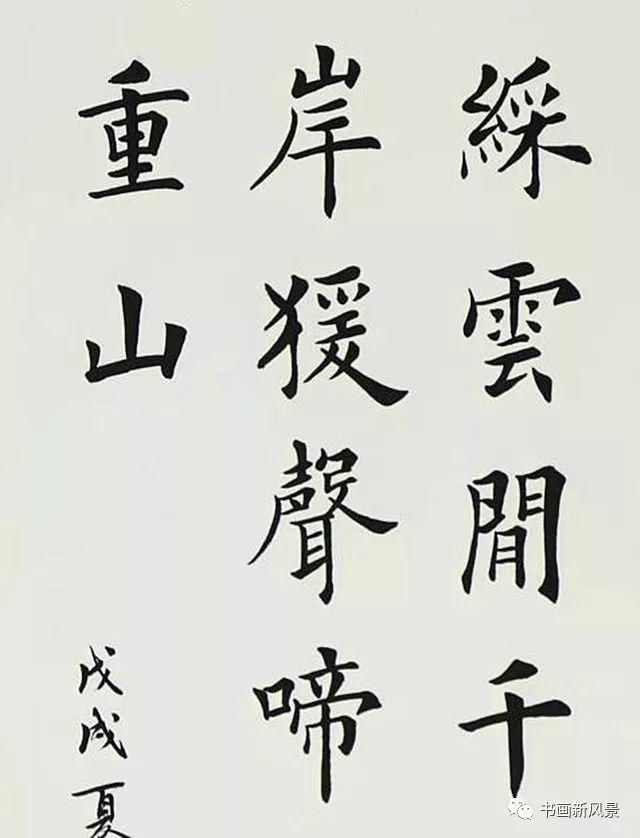 綵雲閒千
岸猨聲啼
重山
戊戌夏
书画新风景